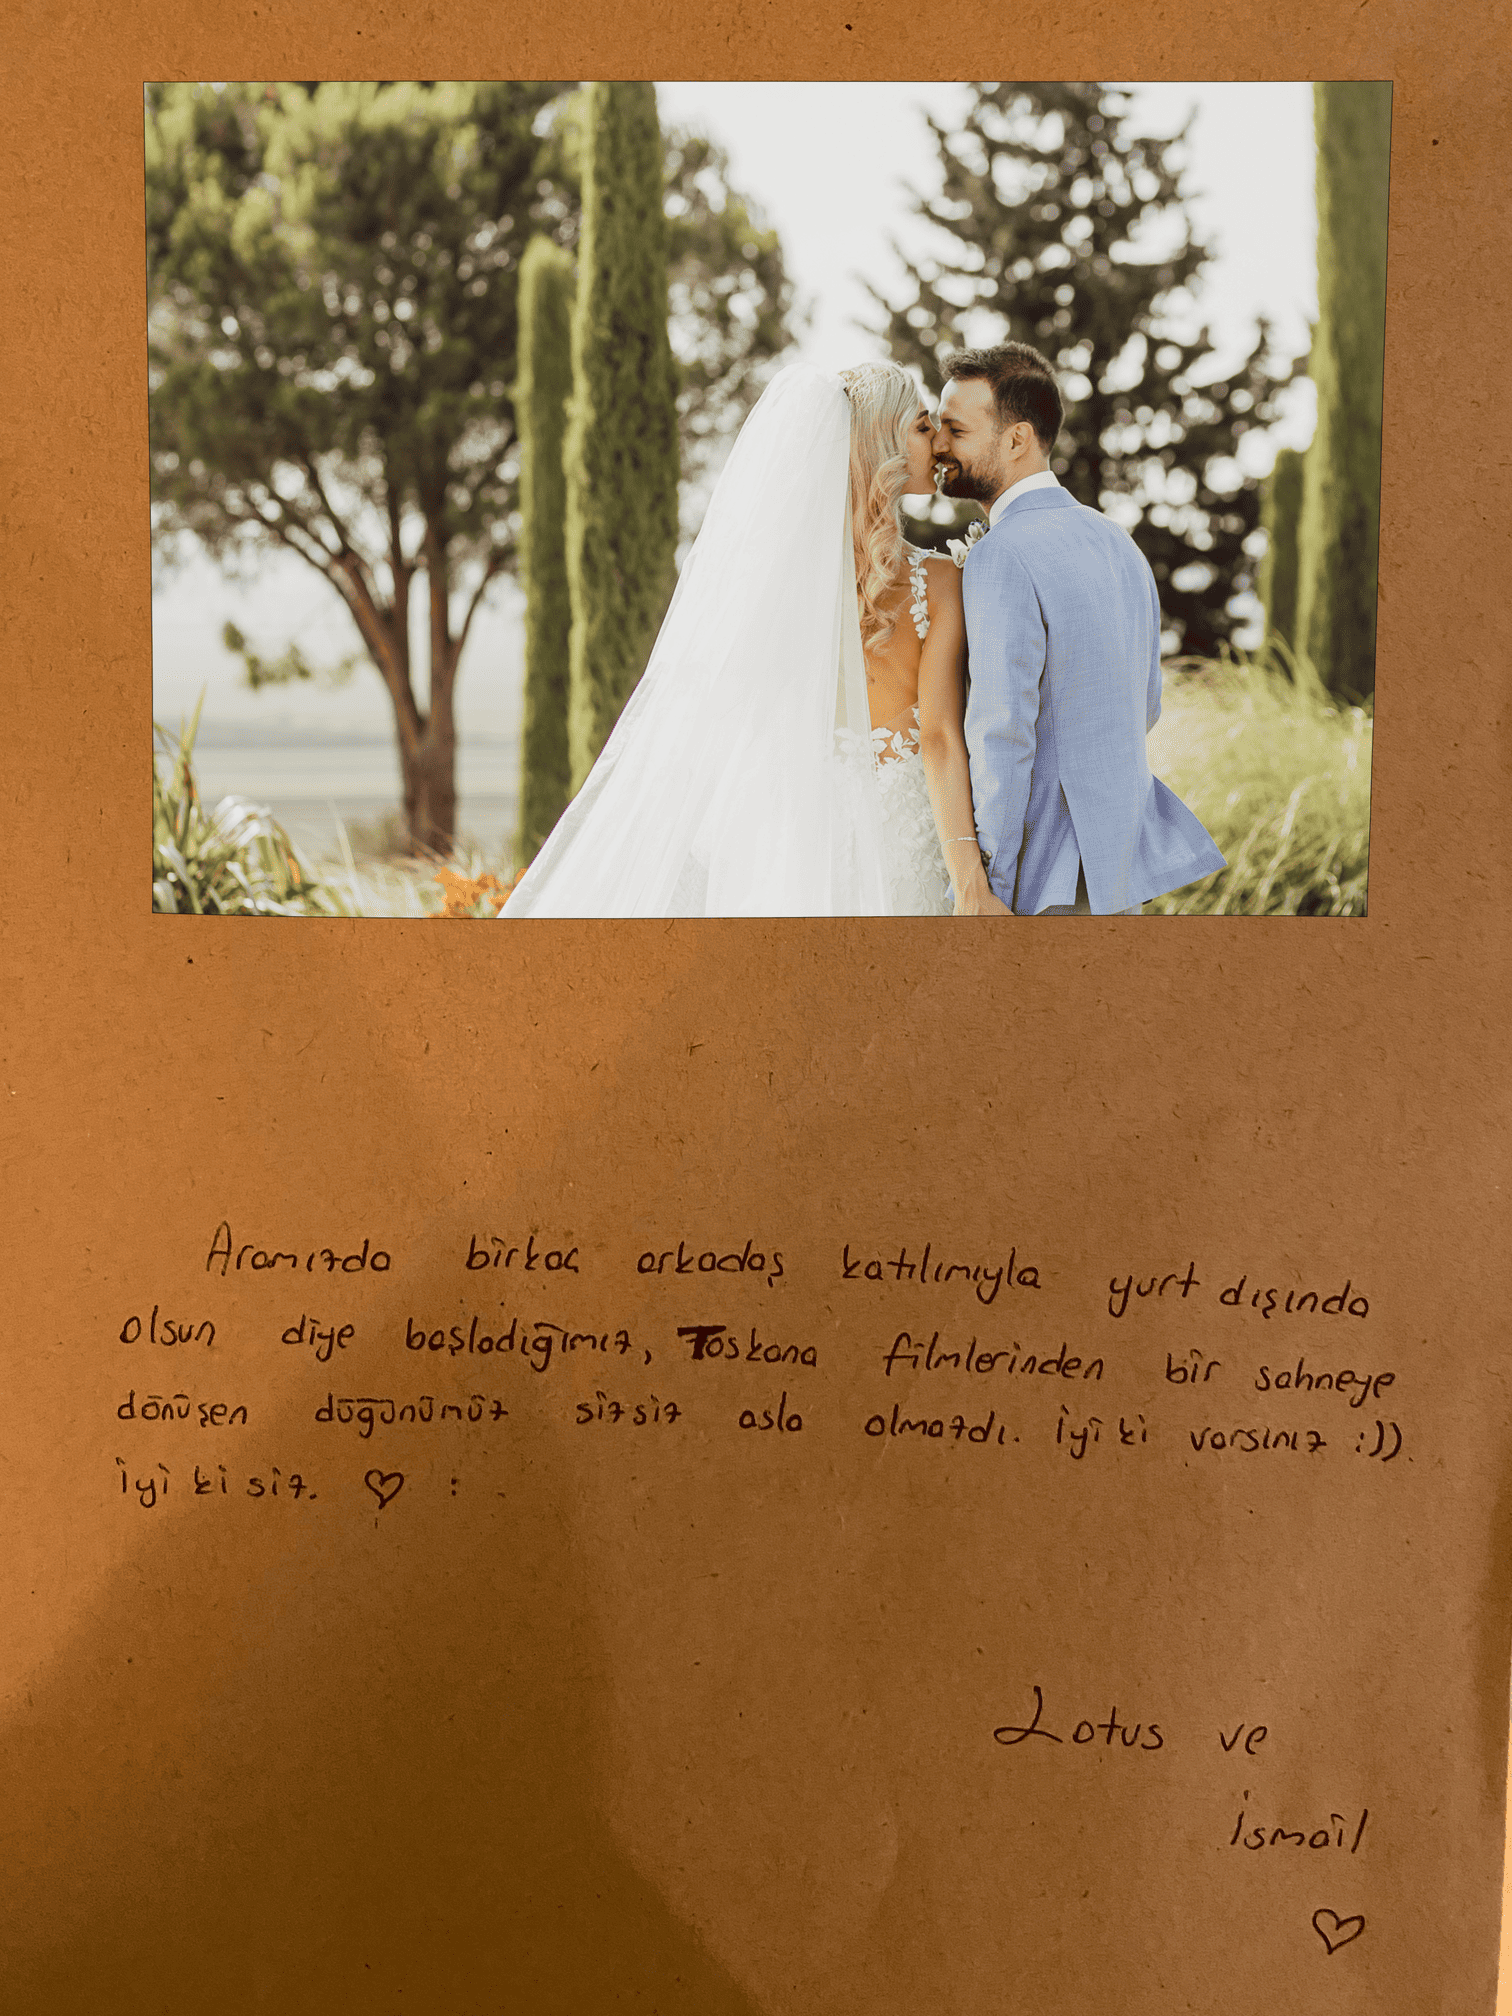 Aramızda birkaç arkadaş katılımıyla yurt dışında
olsun diye başladığımız, Toskana filmlerinden bir sahneye
dönüşen düğünümüz sizsiz asla olmazdı. İyi ki varsınız :))
İyi ki siz. ♡ :
Lotus ve
İsmail
♡